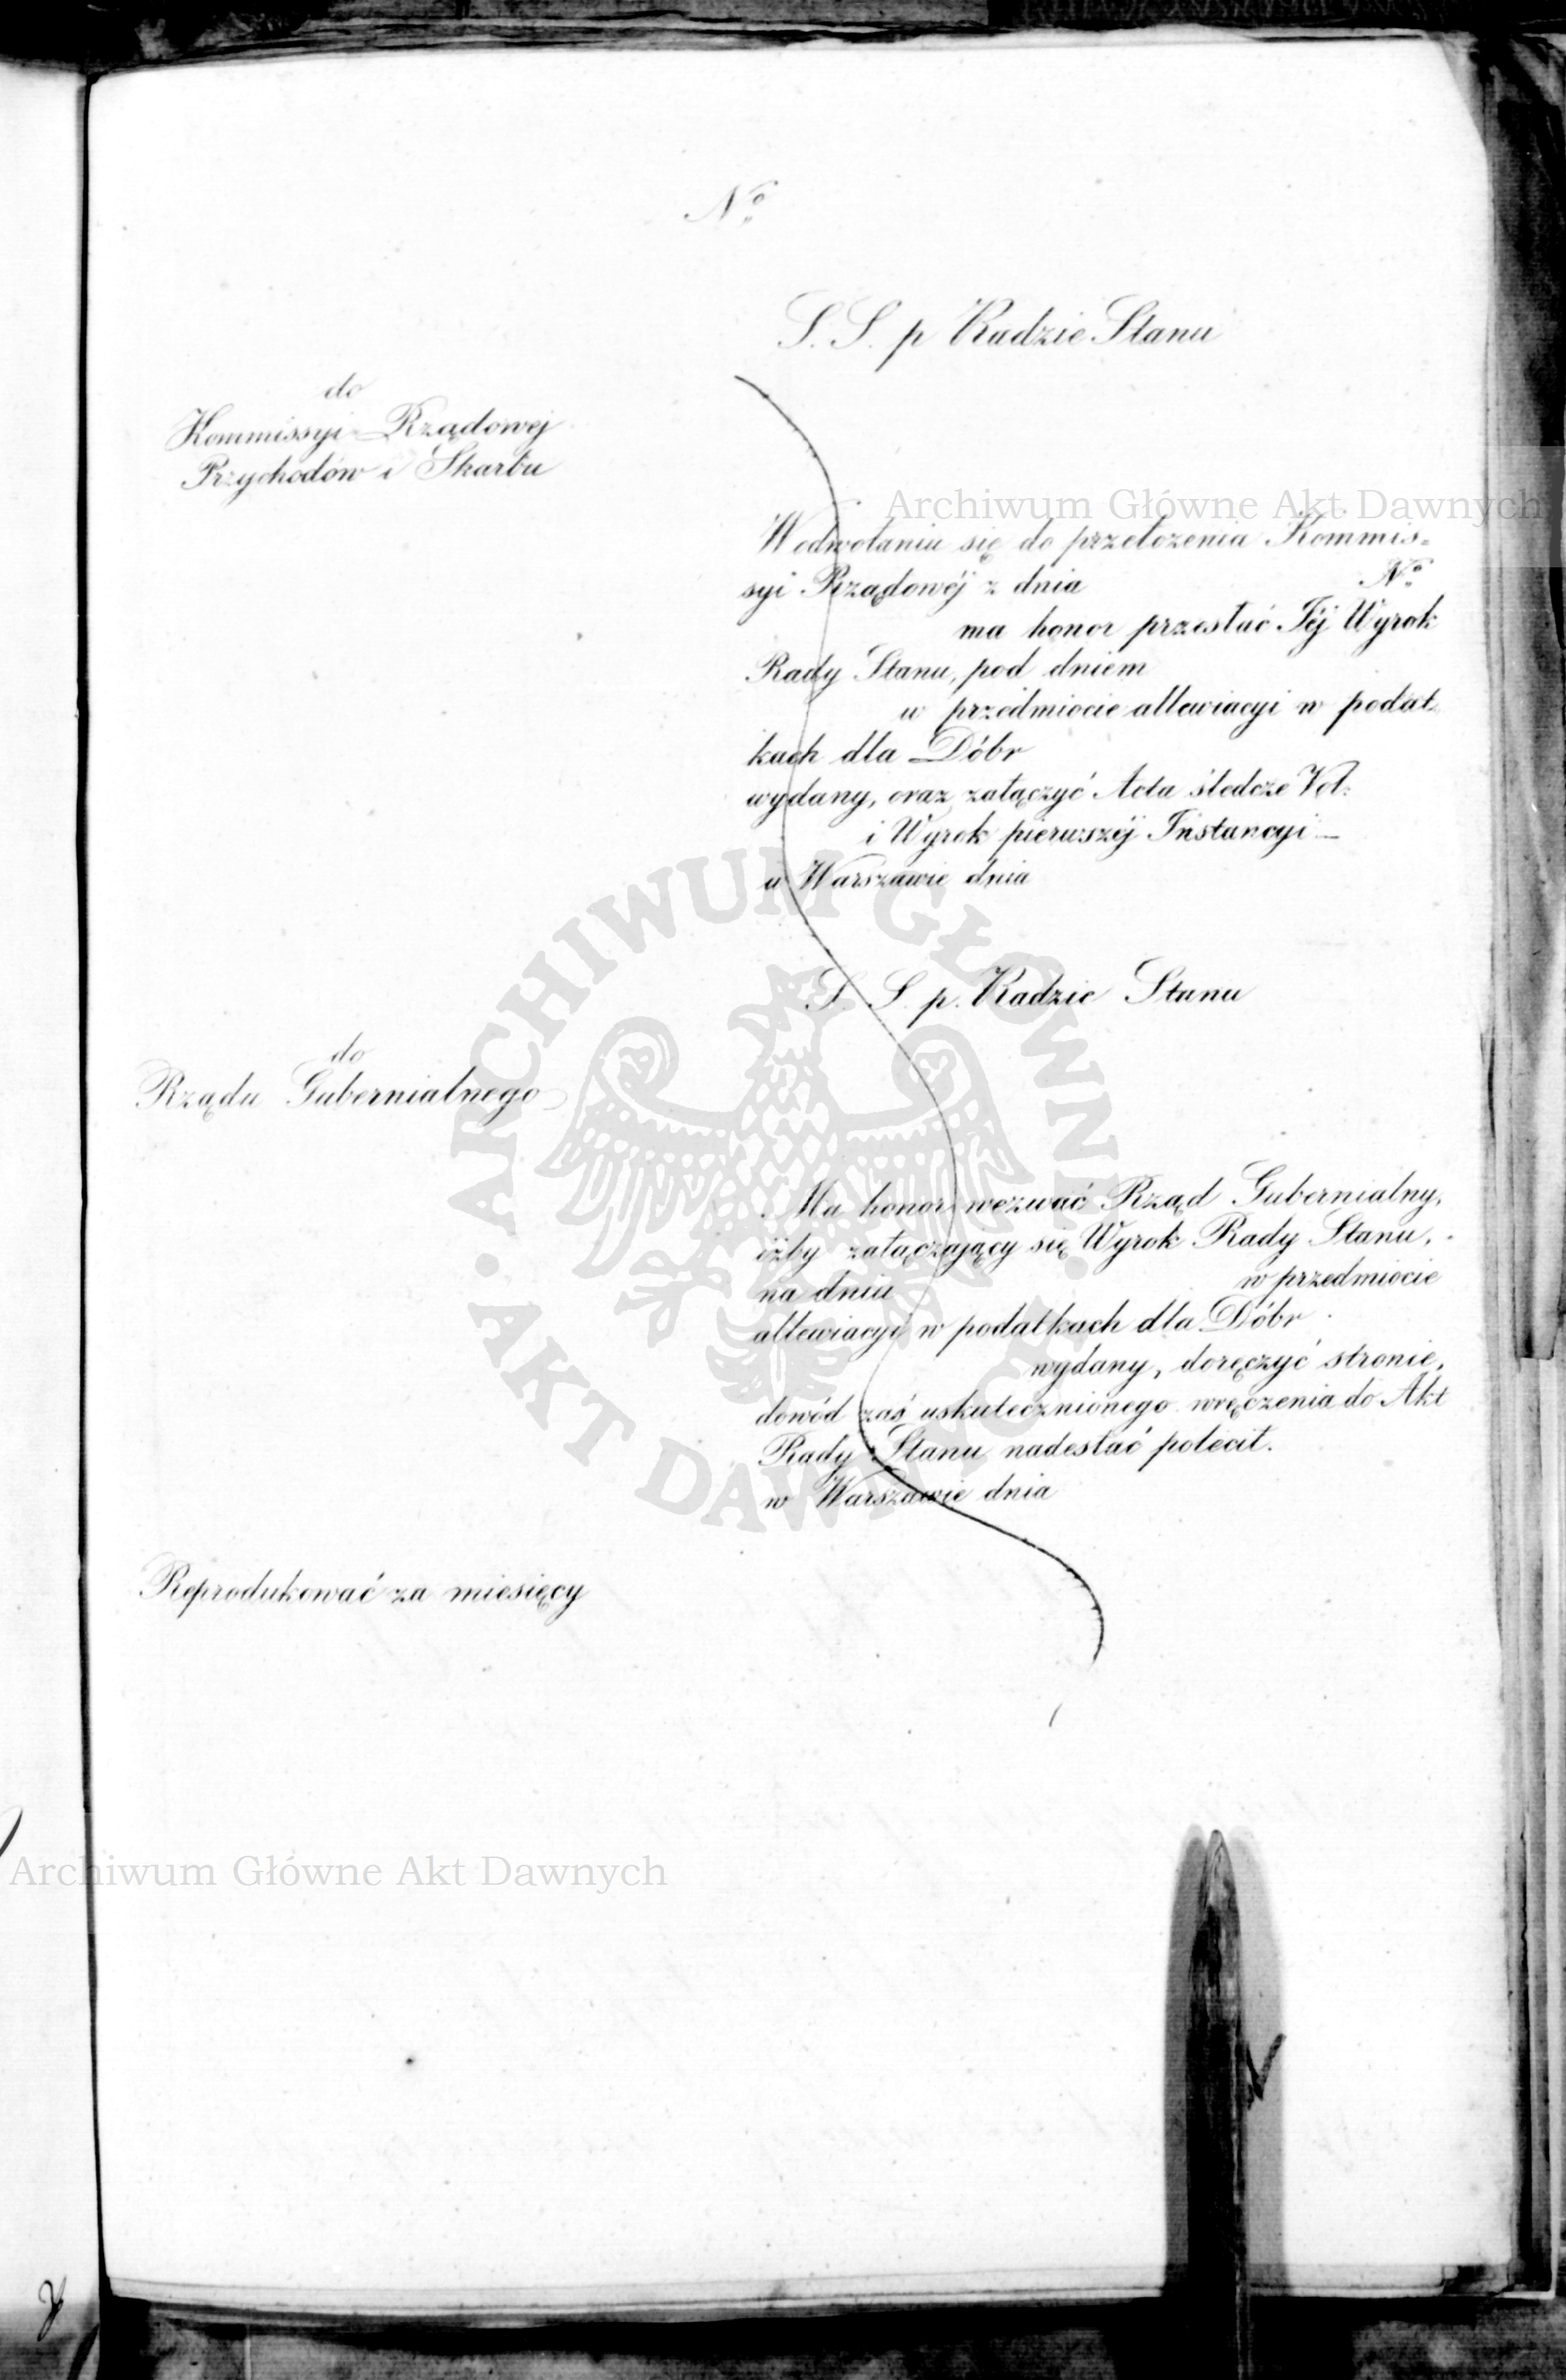 No
S. S. p Radzie Stanu
do
Kommissyi Rządowej
Przychodów i Skarbu
Archiwum Główne Akt Dawnych
W odwołaniu się do przełożenia Kommis=
syi Rządowéj z dnia No
ma honor przesłać Jéj Wyrok
Rady Stanu, pod dniem
w przedmiocie allewiacyi w podat=
kach dla Dóbr
wydany, oraz załączyć Acta śledcze Vol:
i Wyrok pierwszéj Instancyi —
w Warszawie dnia
S. S. p. Radzie Stanu
do
Rządu Gubernialnego
Ma honor wezwać Rząd Gubernialny,
iżby załączający się Wyrok Rady Stanu,
na dniu w przedmiocie
allewiacyi w podatkach dla Dóbr
wydany, doręczyć stronie,
dowód zaś uskutecznionego wręczenia do Akt
Rady Stanu nadesłać polecił.
w Warszawie dnia
Reprodukować za miesięcy
ARCHIWUM GŁÓWNE • AKT DAWNYCH •
Archiwum Główne Akt Dawnych